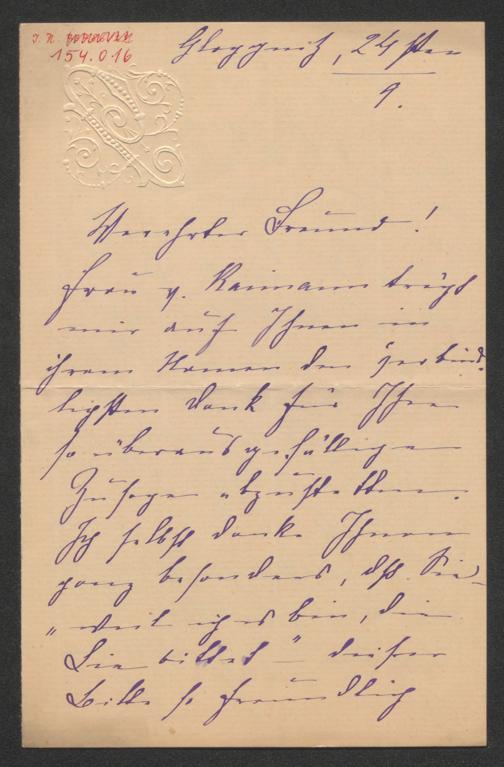 I. N.
154.016
Gloggnitz, 24sten
9.
Verehrter Freund!
Frau v. Raimann trägt
mir auf Ihnen in
ihrem Namen den verbind-
lichsten Dank für Ihre
so überaus gefällige
Zusage abzustatten.
Ich selbst danke Ihnen
ganz besonders, dß Sie –
„weil ich es bin, die
Sie bittet" – dieser
Bitte so freundlich